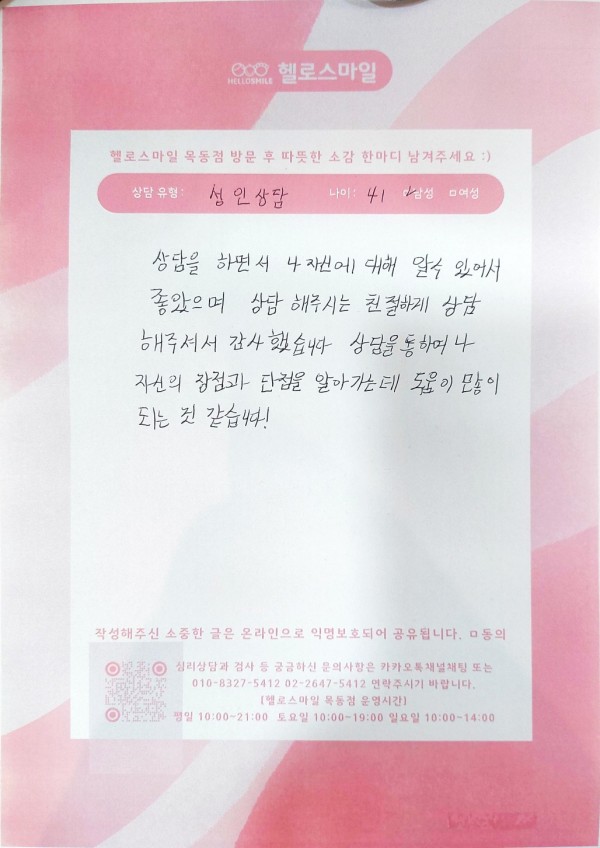 HELLOSMILE 헬로스마일
헬로스마일 목동점 방문 후 따뜻한 소감 한마디 남겨주세요 :)
상담 유형: 성인상담 나이: 41 ☑남성 □여성
상담을 하면서 나 자신에 대해 알수 있어서
좋았으며 상담 해주시는 친절하게 상담
해주셔서 감사했습니다 상담을 통하여 나
자신의 장점과 단점을 알아가는데 도움이 많이
되는 것 같습니다!
작성해주신 소중한 글은 온라인으로 익명보호되어 공유됩니다. □동의
심리상담과 검사 등 궁금하신 문의사항은 카카오톡채널채팅 또는
010-8327-5412 02-2647-5412 연락주시기 바랍니다.
[헬로스마일 목동점 운영시간]
평일 10:00~21:00 토요일 10:00~19:00 일요일 10:00~14:00